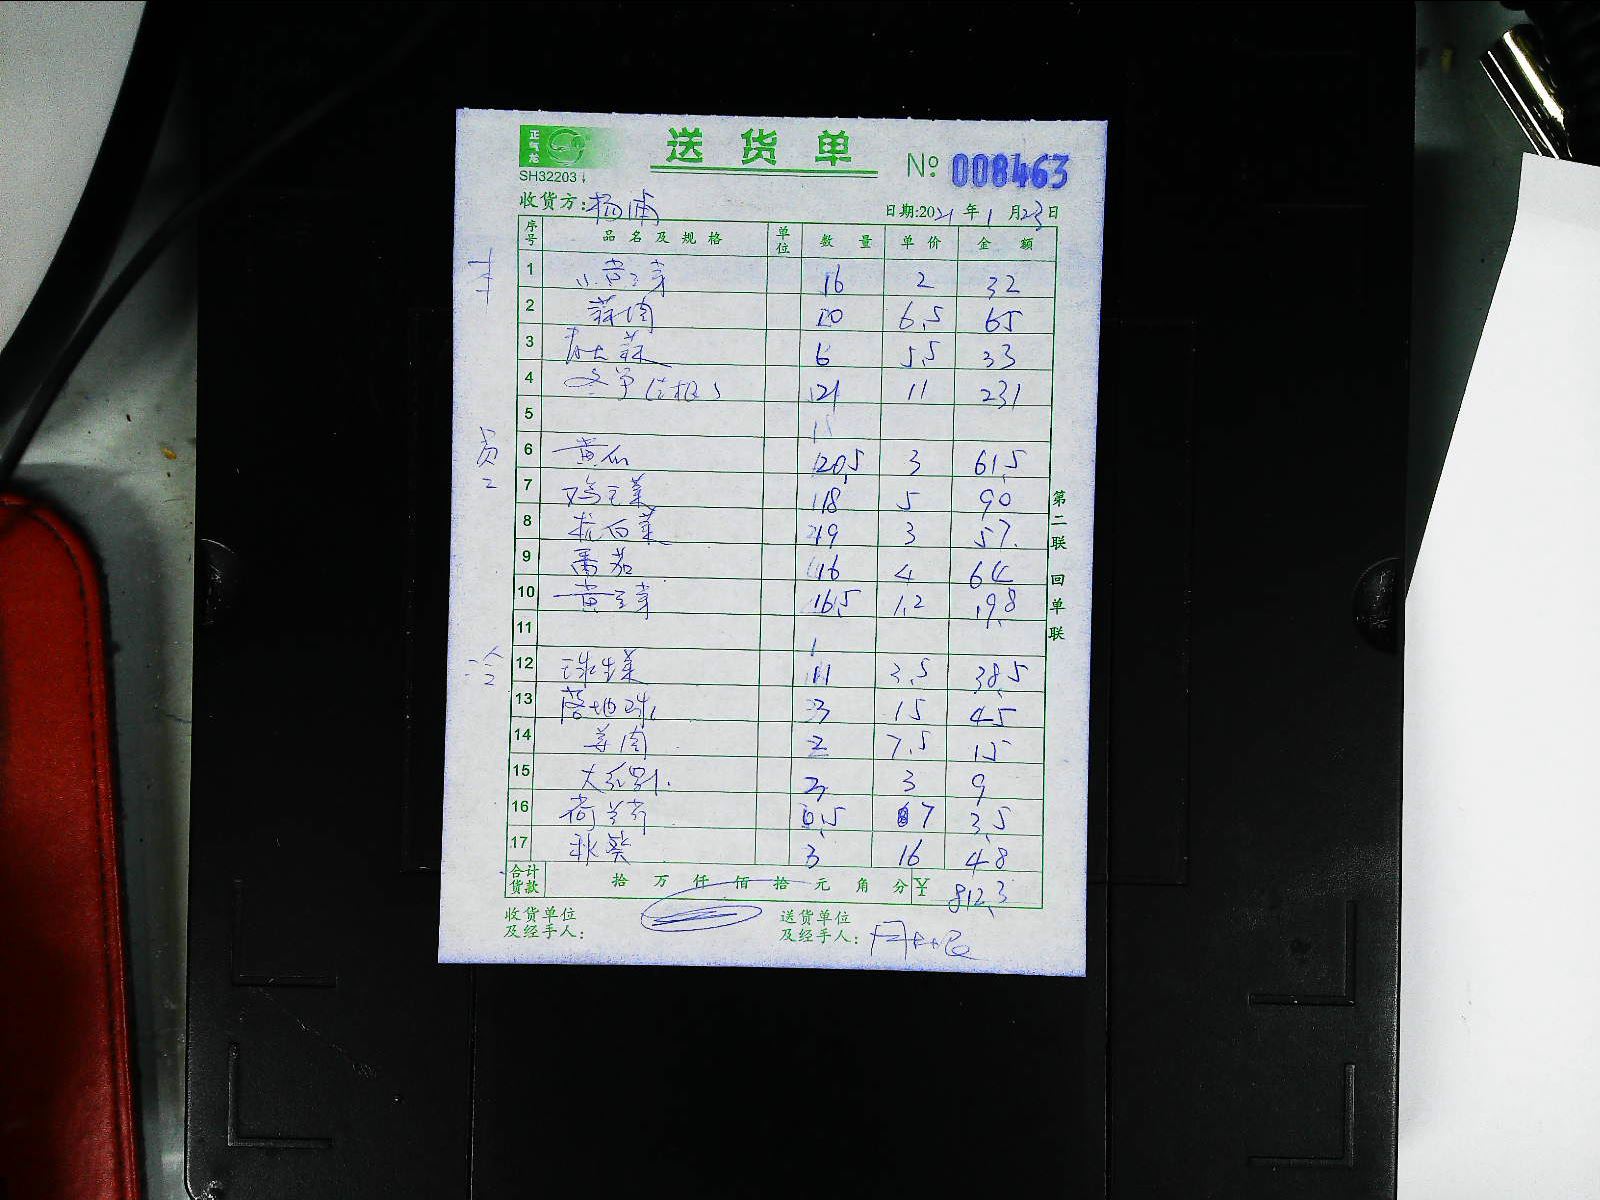 正气龙
SH32203
送货单
№ 008463
收货方: 杨浦
日期:2021年1月23日
序号 品名及规格 单位 数量 单价 金额
1 小黄芽 16 2 32
2 蒜肉 10 6.5 65
3 6 5.5 33
4 21 11 231
5
员工
6 黄瓜 20.5 3 61.5
7 鸡毛菜 18 5 90
8 杭白菜 19 3 57.
9 番茄 16 4 64
10 黄芽 16.5 1.2 19.8
11
冷
12 球生菜 11 3.5 38.5
13 落地球 3 15 45
14 姜肉 2 7.5 15
15 大红 3 3 9
16 荷兰芹 0.5 7 3.5
17 秋葵 3 16 48
合计货款 拾 万 仟 佰 拾 元 角 分 ¥ 812.3
收货单位及经手人:
送货单位及经手人:
第二联 回单联